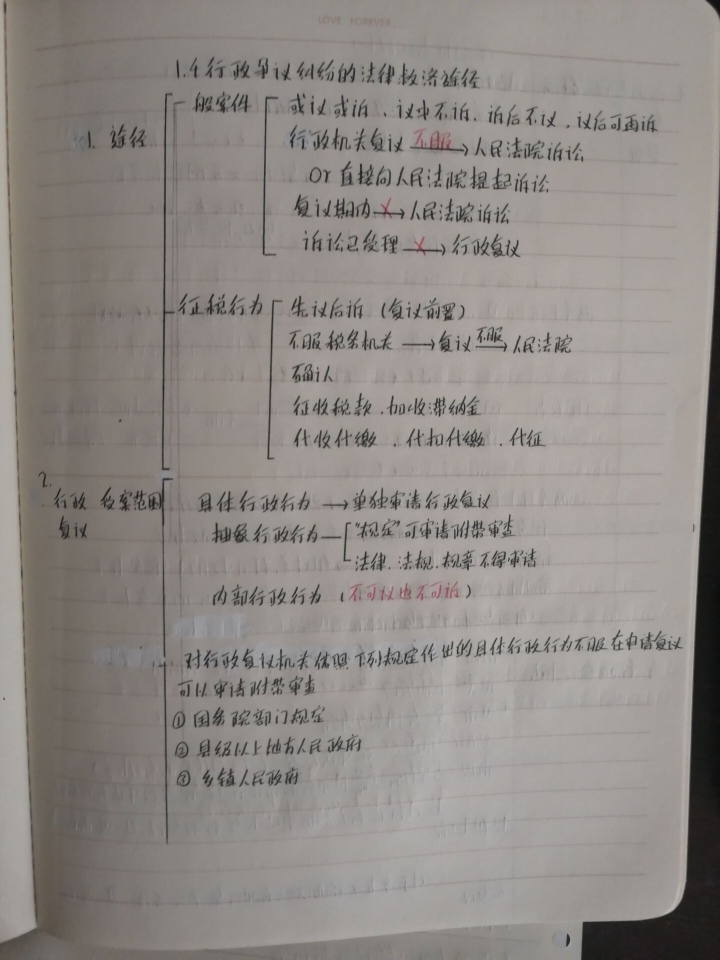 LOVE FOREVER
1.4行政争议纠纷的法律救济途径
1. 途径
一般案件
或议或诉，议中不诉，诉后不议，议后可再诉
行政机关复议 不服→ 人民法院诉讼
or 直接向人民法院提起诉讼
复议期内 ×→ 人民法院诉讼
诉讼已受理 ×→ 行政复议
征税行为
先议后诉（复议前置）
不服税务机关 → 复议 不服→ 人民法院
确认
征收税款、加收滞纳金
代收代缴、代扣代缴、代征
2.
行政复议
受案范围
具体行政行为 → 单独申请行政复议
抽象行政行为
"规定"可申请附带审查
法律、法规、规章不得申请
内部行政行为（不可议也不可诉）
对行政复议机关依照下列规定作出的具体行政行为不服在申请复议
可以申请附带审查
① 国务院部门规定
② 县级以上地方人民政府
③ 乡镇人民政府